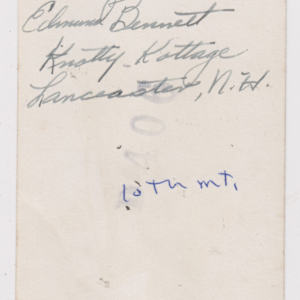 Edmund Bennett
Knotty Kottage
Lancaster, N.H.
10th mt.